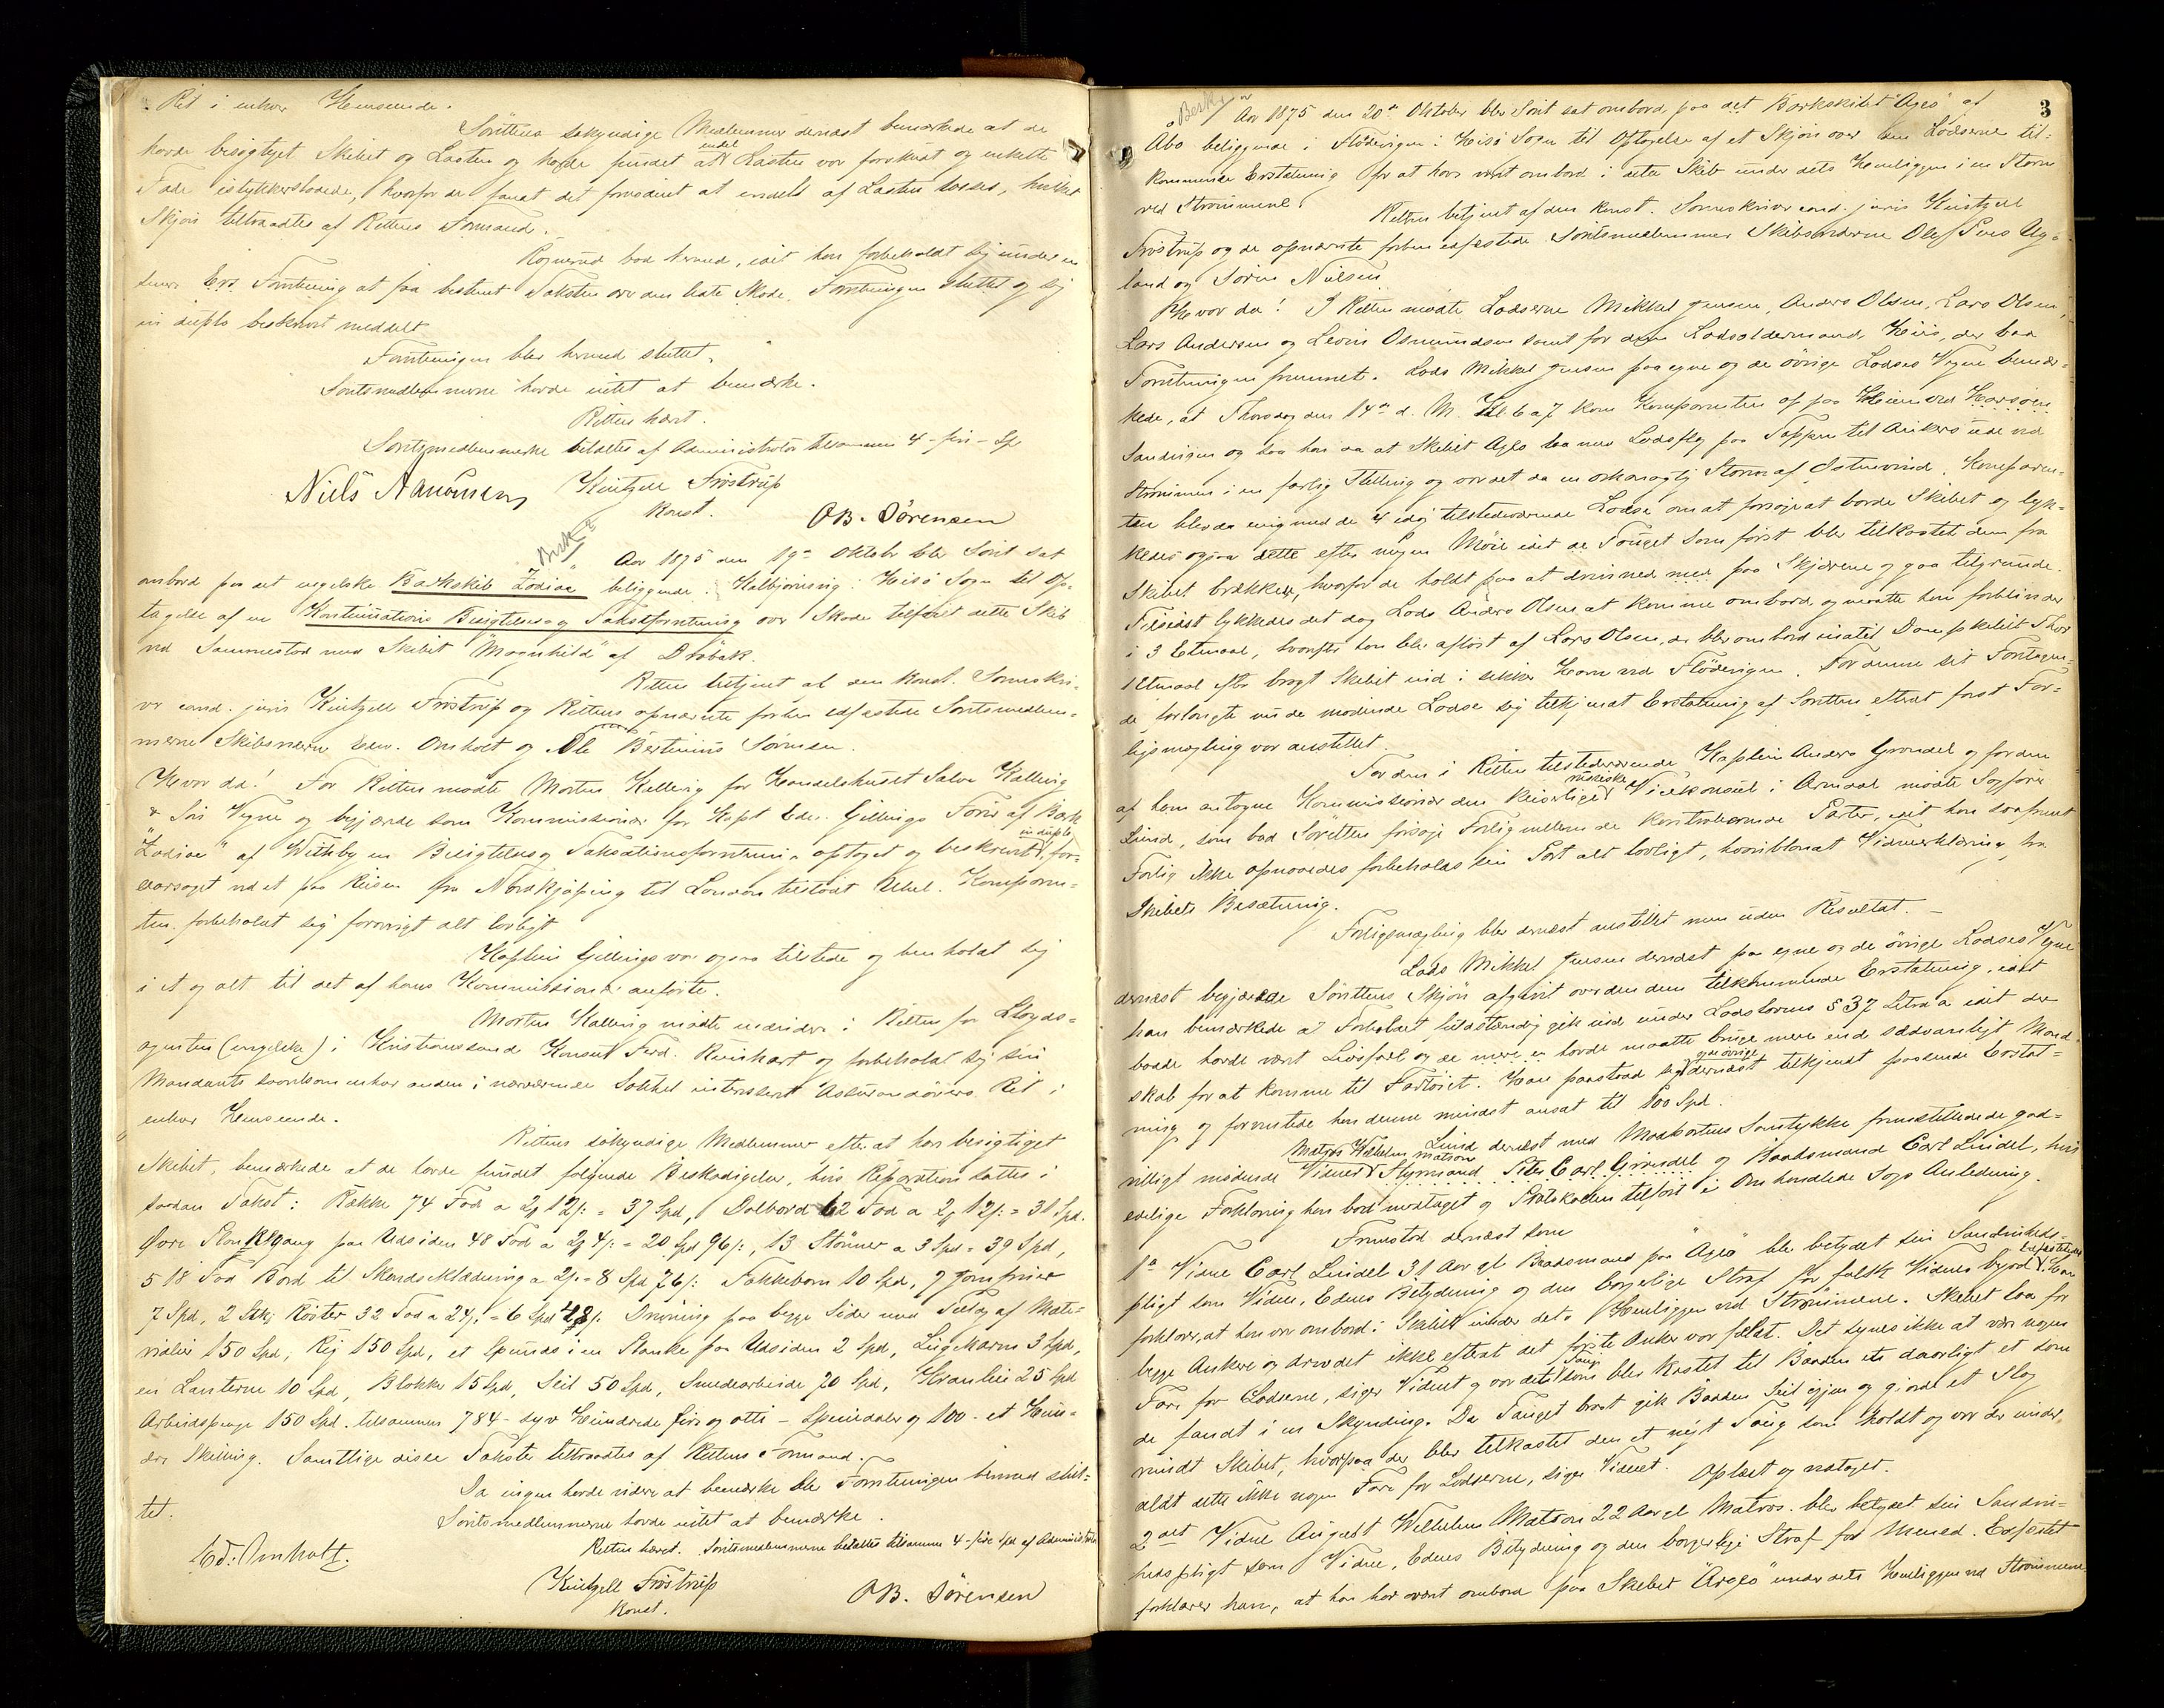 Ret i enhver Henseende.
Sørettens søkyndige Medlemmer dernæst bemærkede at de
havde besigtiget Skibet og Lasten og havde fundet at endel Lasten var forskudt og enkelte
Fade istykkerstødede, hvorfor de fandt det fornødent at endel af Lasten losses, hvilket
Skjøn tiltraadtes af Rettens Formand.
bad hermed, idet han forbeholdt sig under en
senere Forretning at faa bestemt Taksten over den lidte Skade, Forretningen sluttet og sig
in duplo beskrevet meddelt
Forretningen blev hermed sluttet.
Søretsmedlemmerne havde intet at bemærke.
Retten hævet.
Søretsmedlemmerne betaltes af Administrator tilsammen 4 - fire - Sp
Niels Kintzell Frøstrup
Konst. O B. Sørensen
Besk.
Aar 1875 den 19de Oktober blev Søret sat
ombord paa det engelske Barkskib Zodiac beliggende i Kalbjørnsvig i Hisø Sogn til Op-
tagelse af en Kontinuations Besigtelses og Taksationsforretning over Skade tilføiet dette Skib
ved Sammenstød med Skibet "Magnhild" af Drøbak.
Retten betjent af den konst. Sorenskri-
ver cand. juris Kintzell Frøstrup og Rettens opnævnte forhen edfæstede Søretsmedlem-
merne Skibsrederne Edv. Omholt og Ole Bertinius Sørensen.
Hvor da! For Retten mødte Morten Kallevig for Handelshuset Salve Kallevig
& Søn Vegne og begjærede som Kommissionær for Kapt Edw. Gillings Fører af Bark
"Zodiac" af Whitby en Besigtelses og Taksationsforretning optaget og beskrevet in duplo, for-
aarsaget ved et paa Reisen fra Norrkjøping til London tilstødt Uheld. Komparen-
ten forbeholdt sig forøvrigt alt lovligt
Kaptein Gillings var ogsaa tilstede og henholdt sig
i et og alt til det af hans Kommissionær anførte.
Morten Kallevig mødte endvidere i Retten for Lloyds-
agenten (engelske) i Kristianssand Konsul Ferd. Reinhart og forbeholdt sig sin
Mandants saavelsom enhver anden i nærværende Sakket interesseret Assurandørers Ret i
enhver Henseende.
Rettens søkyndige Medlemmer efter at have besigtiget
Skibet, bemærkede at de havde fundet følgende Beskadigelser, hvis Reparation sattes i
saadan Takst: Række 74 Fod a 2 12/: = 37 Spd, Dolbord 62 Fod a 2 12/: = 31 Spd.
Øvre Plankegang paa Udsiden 48 Fod a 2 4/: = 20 Spd 96/:, 13 Støtter a 3 Spd = 39 Spd,
518 Fod Bord til Skandseklædning a 2/: = 8 Spd 76/: Fokkebom 10 Spd, 7 Jomfruer
7 Spd, 2 Stkj Røster 32 Fod a 24/: = 6 Spd 48/: Drivning paa begge Sider med Tillæg af Mate-
rialier 150 Spd, Rig 150 Spd, et Spunds i en Planke paa Udsiden 2 Spd, 3 Spd,
en Lanterne 10 Spd, Blokke 15 Spd, Seil 50 Spd, Smedearbeide 70 Spd, 25 Spd
Arbeidspenge 150 Spd. tilsammen 784 - syv Hundrede fire og otti - Speciedaler og 100 - et Hun-
drede Skilling. Samtlige disse Takster tiltraadtes af Rettens Formand.
Da ingen havde videre at bemærke blev Forretningen hermed slut-
tet.
Søretsmedlemmerne havde intet at bemærke.
Retten hævet. Søretsmedlemmerne betaltes tilsammen 4 - fire Spd af Administrator
Ed: Omholt.
Kintzell Frøstrup
Konst. O B. Sørensen
3
Besk.
Aar 1875 den 20de Oktober blev Søret sat ombord paa det Barkskibet "Ægeo" af
Åbo beliggende i Flødevigen i Hisø Sogn til Optagelse af et Skjøn over den Lodserne til-
kommende Erstatning for at have været ombord i dette Skib under dets Henliggen i en Storm
ved Strømmene.
Retten betjent af den konst. Sorenskriver cand. juris Kintzell
Frøstrup og de opnævnte forhen edfæstede Søretsmedlemmer Skibsrederne Olef Ug-
land og Søren Nielsen
Hvor da! I Retten mødte Lodserne Mikkel Jensen, Anders Olsen, Lars Olsen,
Lars Andersen og Levin Osmundsen samt for dem Lodsoldermand Hiis, der bad
Forretningen fremmet. Lods Mikkel Jensen paa egne og de øvrige Lodses Vegne bemær-
kede, at Thorsdag den 14de d. M. Kl. 6 a 7 kom Komparenten op paa Heien ved Havsøen
Sandvigen og saa han da at Skibet Ægeo laa med Lodsflag paa Toppen til Ankers ude ved
Strømmen i en farlig Stilling og var det da en orkanagtig Storm af Østnevind. Komparen-
ten blev da enig med de 4 idag tilstedeværende Lodse om at forsøge at borde Skibet og lyk-
kedes ogsaa dette efter megen Møie idet de Touget som først blev tilkastet dem fra
Skibet brækkede, hvorfor de holdt paa at drive ned med paa Skjærene og gaa tilgrunde.
Tilsidst lykkedes det dog Lods Anders Olsen at komme ombord og maatte han forblive der
i 3 Etmaal, hvorefter han blev afløst af Lars Olsen, der blev ombord indtil Dampskibet Thor
1 Etmaal efter bragt Skibet ind i sikker Havn ved Flødevigen. For denne sit Foretagen-
de forlangte nu de mødende Lodse sig tilkjendt Erstatning af Søretten efterat først For-
ligsmægling var anstillet.
For den i Retten tilstedeværende Kaptein Anders Grøndel og for den
af ham antagne Kommissionær den keiserlige russiske Vicekonsul i Arendal mødte Sagfører
Lund, som bad Søretten forsøge Forlig mellem de kontraherende Parter, idet han saafremt
Forlig ikke opnaaedes forbeholdt sin Part alt lovligt, hvoriblandt Vidneerklæring fra
Skibets Besætning.
Forligsmægling blev dernæst anstillet men uden Resultat.
Lods Mikkel Jensen dernæst paa egne og de øvrige Lodses Vegne
dernæst begjærede Sørettens Skjøn afgivet over den dem tilkommende Erstatning, idet
han bemærkede at Forholdet fuldstændig gik ind under Lodslovens § 37 Litra a idet der
baade havde været Livsfare og de havde maatte bruge mere end sædvanligt Mand-
skab for at komme til Fartøiet. Han paastod sig og de øvrige dernæst tilkjendt passende Erstat-
ning og formente han denne mindst ansat til 100 Spd.
Lund dernæst med Modpartens Samtykke fremstillede de god-
villigt mødende Vidner Matros Wilhelm Matson Styrmand Carl Grøndel og Baadsmand Carl Lindel, hvis
edelige Forklaring han bad modtaget og Protokollen tilført i Omhandlede Sags Anledning.
Fremstod dernæst som
1ste Vidne Carl Lindel 31 Aar gl Baadsmand paa "Ægeo" blev betydet sin Sandheds-
pligt som Vidne, Edens Betydning og den borgerlige Straf for falsk Vidnesbyrd. Edfæstet Han
forklarer, at han var ombord i Skibet under dets Henliggen ved Strømmene. Skibet laa for
begge Ankere og drev det ikke efterat det første Anker var faldt. Det synes ikke at være nogen
Fare for Lodserne, siger Vidnet og var det Toug som blev kastet til Baaden et daarligt et som
de fandt i en Skynding. Da Touget brast gik Baadens Seil igjen og gjorde et Slag
rundt Skibet, hvorpaa der blev tilkastet den et nyt Toug som holdt og var der under
aldt dette ikke nogen Fare for Lodserne, siger Vidnet. Oplæst og vedtaget.
2det Vidne August Wilhelm Matson 22 Aar gl Matros. blev betydet sin Sandre-
hedspligt som Vidne, Edens Betydning og den borgerlige Straf for Mened. Edfæstet
forklarer han, at han har været ombord paa Skibet "Ægeo" under dets Henliggen ved Strømmene